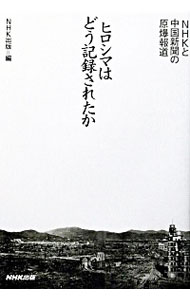 NHKと
中国新聞の
原爆報道
ヒロシマは
どう記録されたか
NHK出版=編
NHK出版